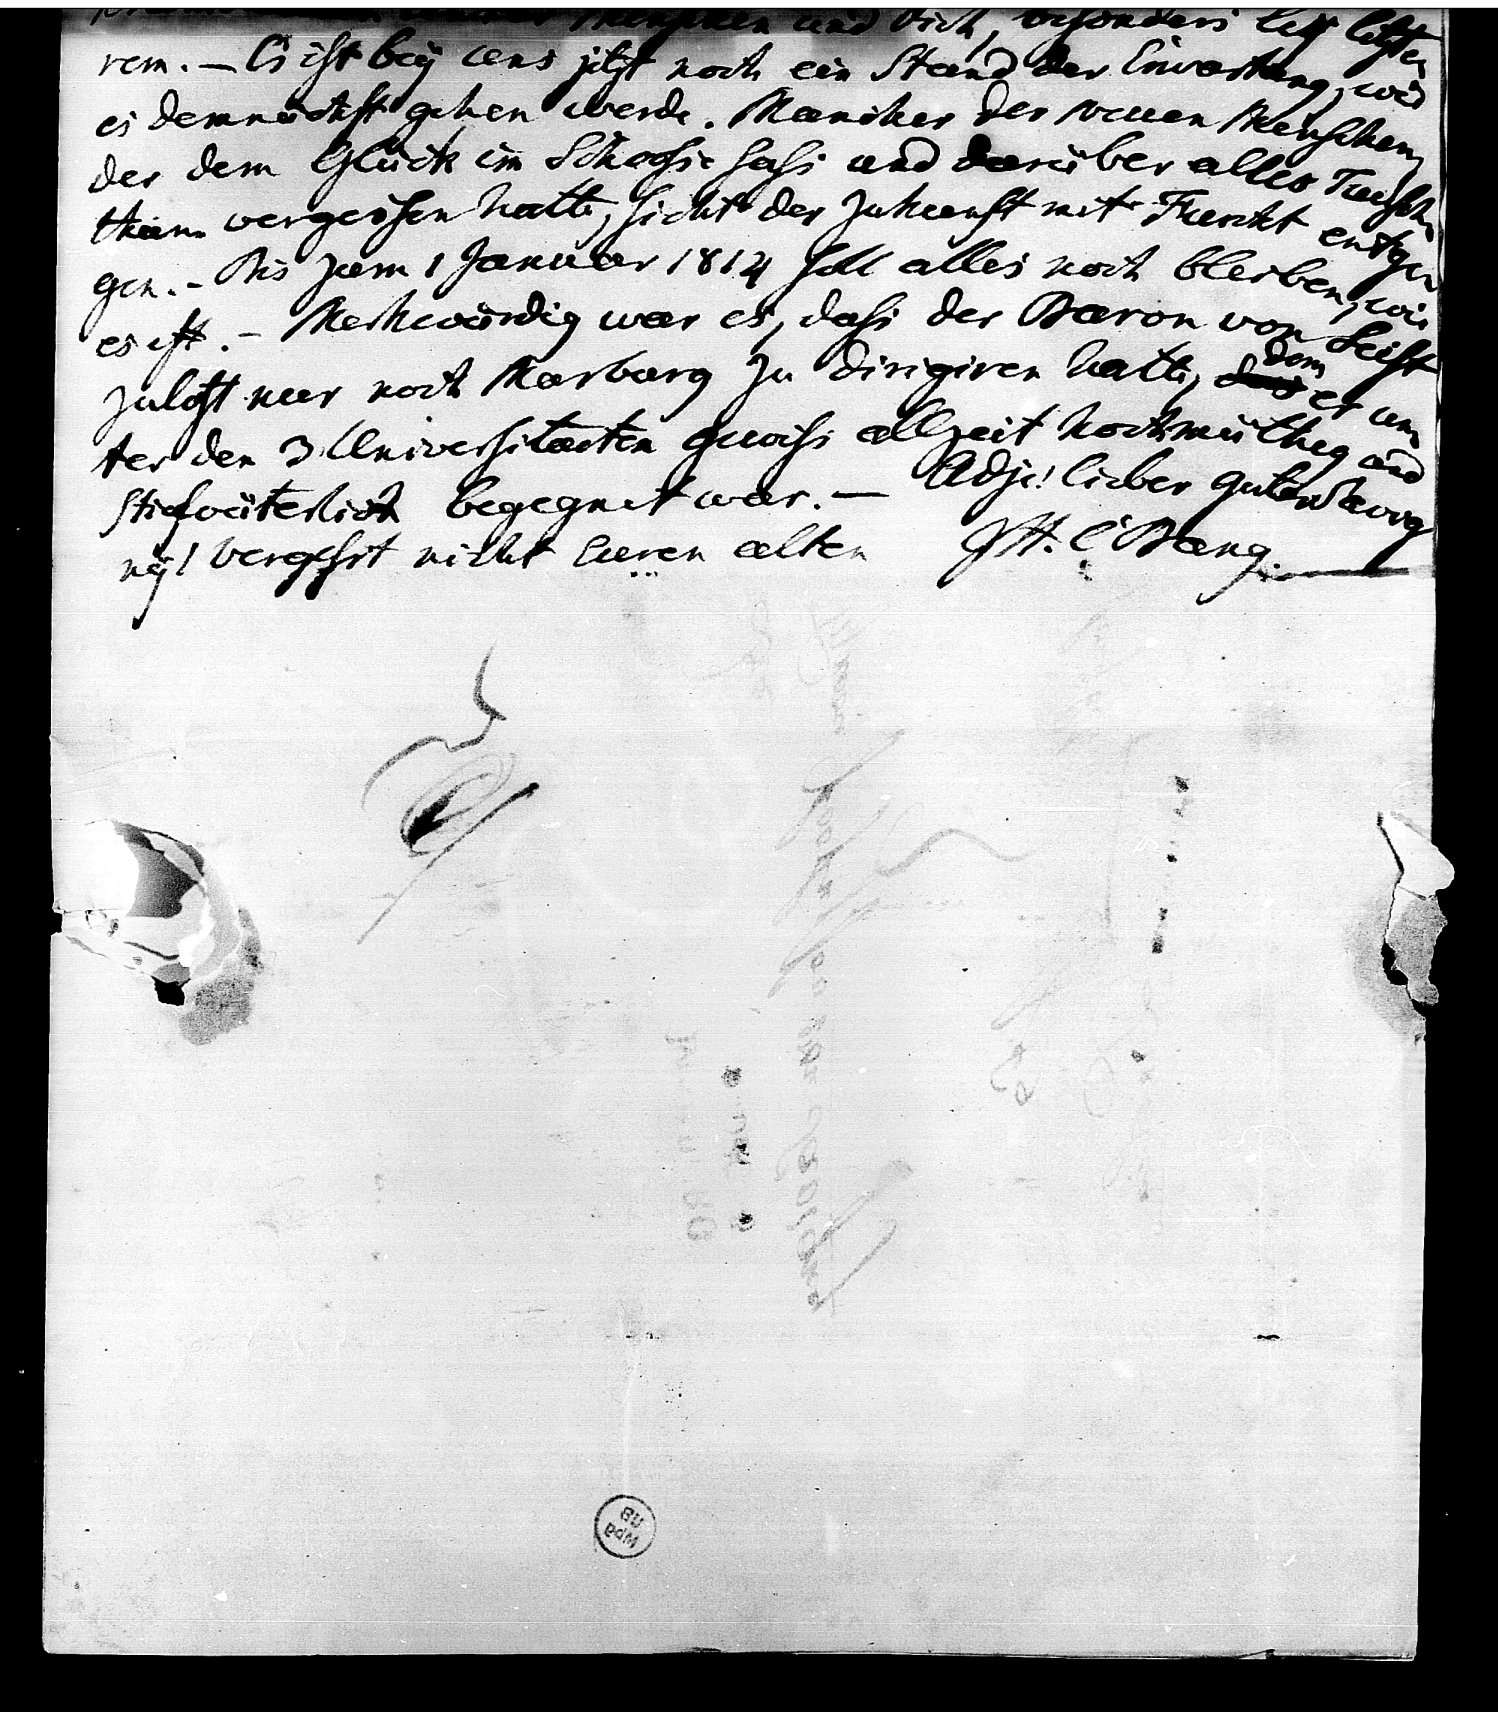 Menschen und Vieh, besonders bey letzte
rem. – Es ist bey uns jetzt noch ein Stand der Erwartung, wie
es demnächst gehen werde. Mancher der neuen Menschen,
der dem Glück im Schoosse sass und darüber alles Teutsch
thum vergessen hatte, sieht der Zukunft mit Furcht entge
gen. – Bis zum 1 Januar 1814 soll alles noch bleiben, wie
es ist. – Merkwürdig war es, dass der Baron von Leist
zuletzt nur noch Marburg zu dirigiren hatte, dem er un
ter den 3 Universitaeten gewiss allzeit hochmüthig und
stiefväterlich begegnet war. – Adje! lieber guter Savig
ny! Vergesst nicht Euren alten JH. C Bang